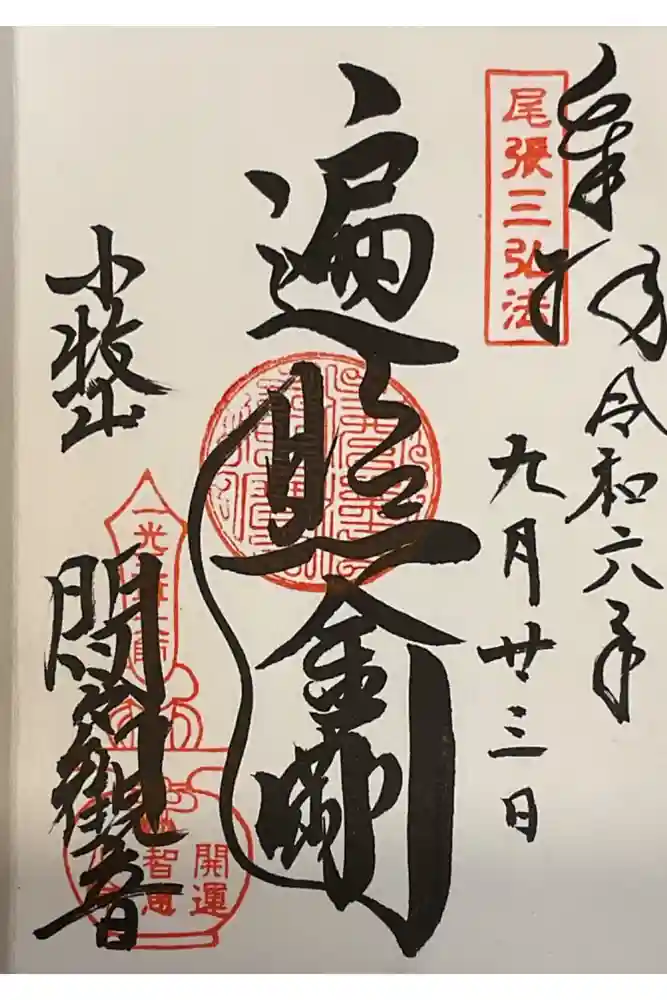 奉拝
令和六年
九月廿三日
尾張三弘法
遍照金剛
小牧山
間間觀音
開運
智恵